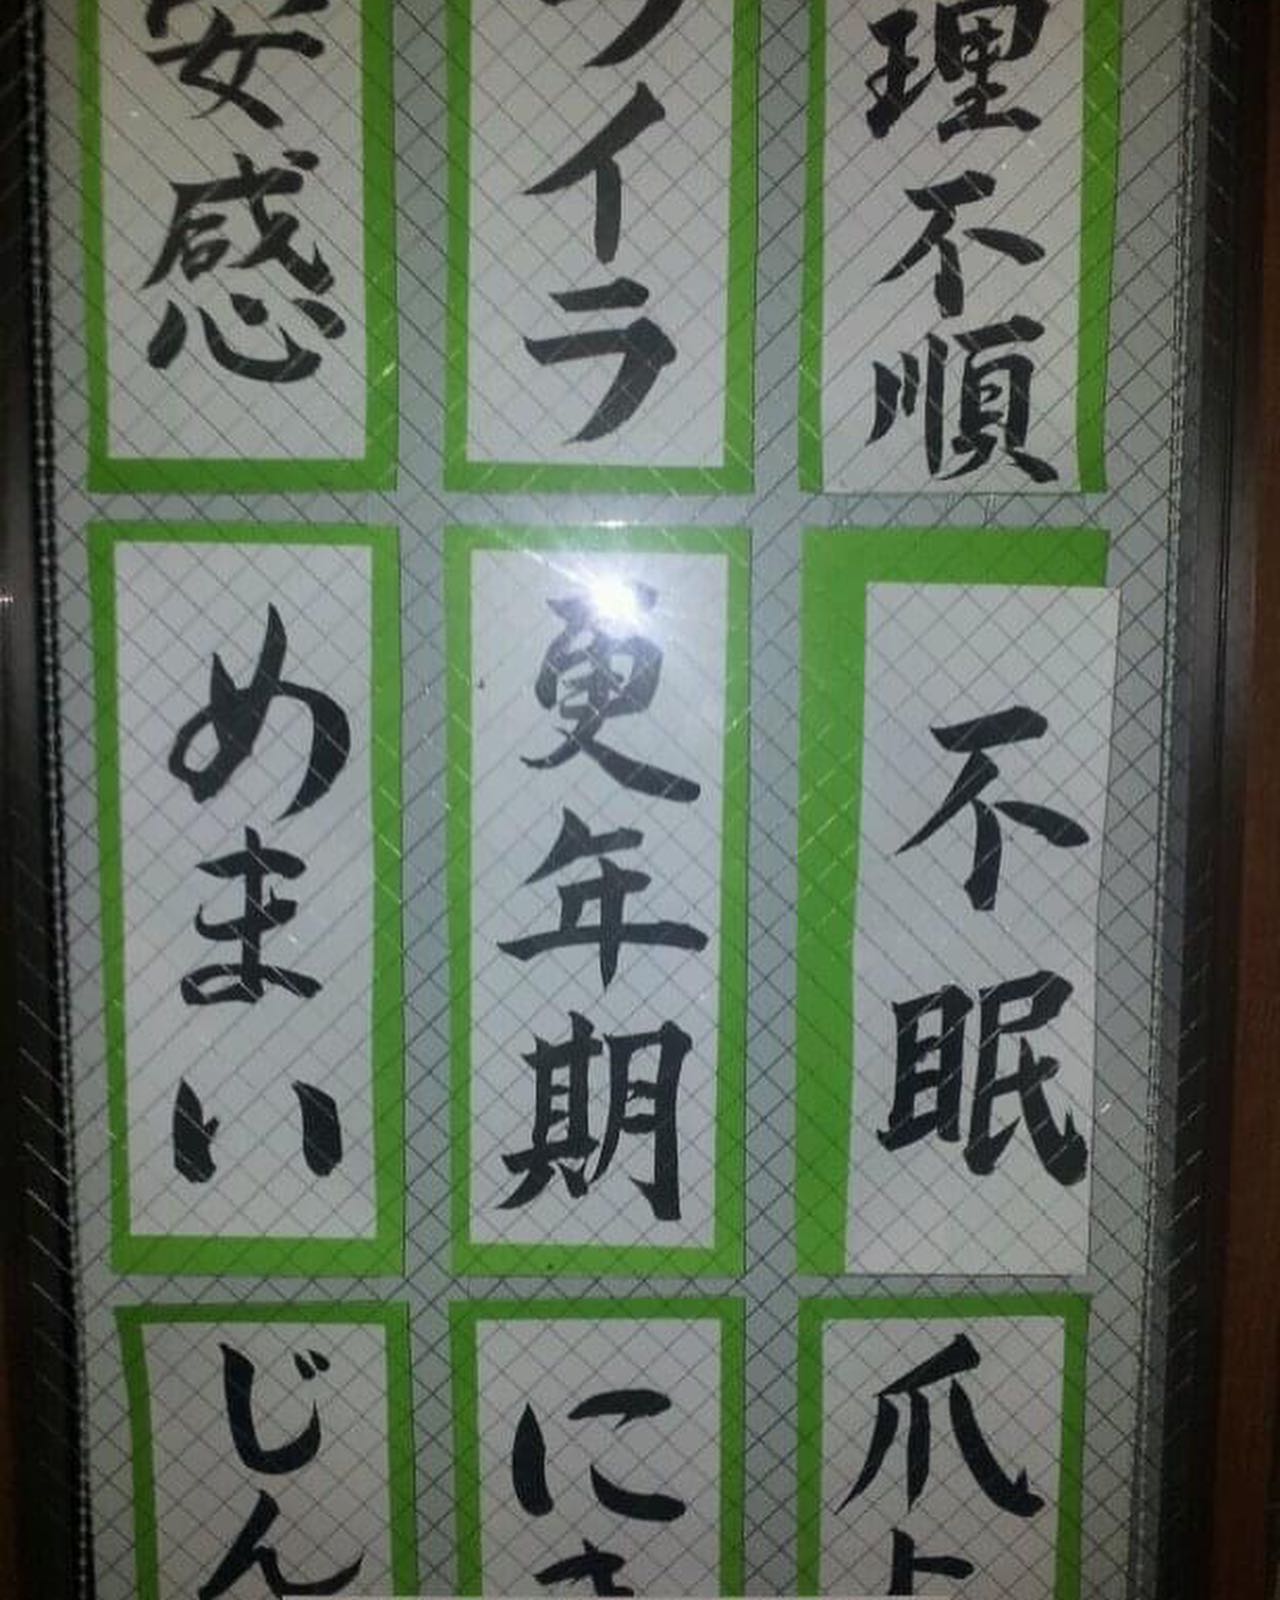 理不順
イラ
安感
不眠
更年期
めまい
爪
に
じん